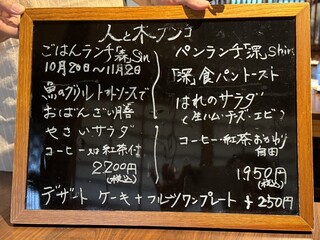 人と木
ごはんランチ「深」Sin
10月20日〜11月2日
魚のグリル トマトソースで
おばんざい膳
やさいサラダ
コーヒー又は紅茶付
2200円
(税込)
パンランチ「深」Shin
「深」食パントースト
はれのサラダ
(生ハム・チーズ・エビ)
コーヒー・紅茶おかわり
自由
1950円
(税込)
デザート ケーキ+フルーツワンプレート +250円